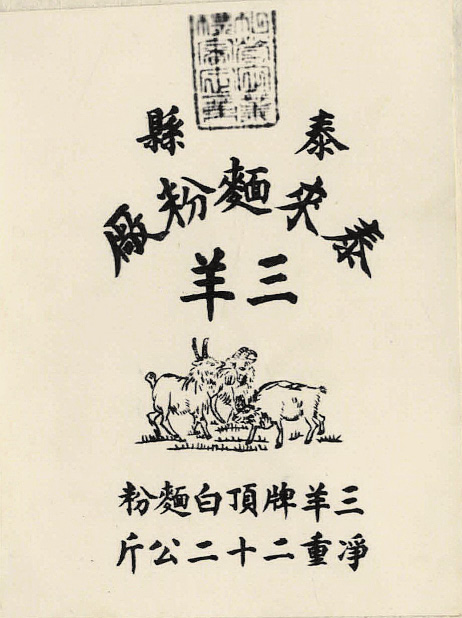 泰縣
泰來麵粉廠
三羊
三羊牌頂白麵粉
凈重二十二公斤